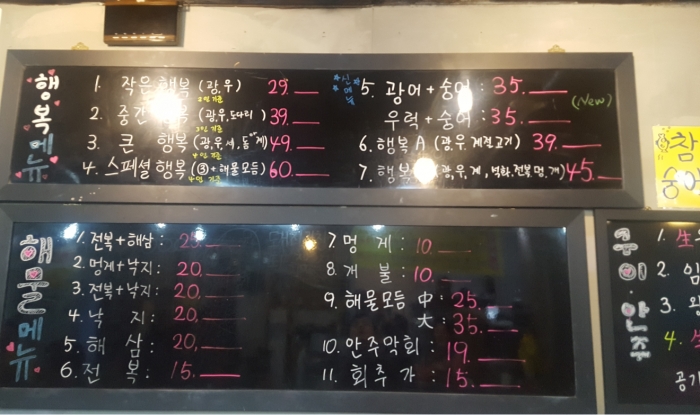 행복메뉴
1. 작은 행복 (광,우) 29.
2인 기준
2. 중간 행복 (광,우,도다리) 39.
3인 기준
3. 큰 행복 49.
4인 기준
4. 스페셜 행복 (③+해물모듬) 60.
신메뉴
5. 광어+숭어: 35.
우럭+숭어: 35.
(New)
6. 행복 A (광,우,계절고기) 39.
7. 행복 45.
해물메뉴
1. 전복+해삼: 25.
2. 멍게+낙지: 20.
3. 전복+낙지: 20.
4. 낙 지: 20.
5. 해 삼: 20.
6. 전 복: 15.
7. 멍 게: 10.
8. 개 불: 10.
9. 해물모듬 中: 25.
大: 35.
10. 안주악회: 19.
11. 회추가: 15.
참
숭어
안주
1. 生
2.
3.
4.
공기